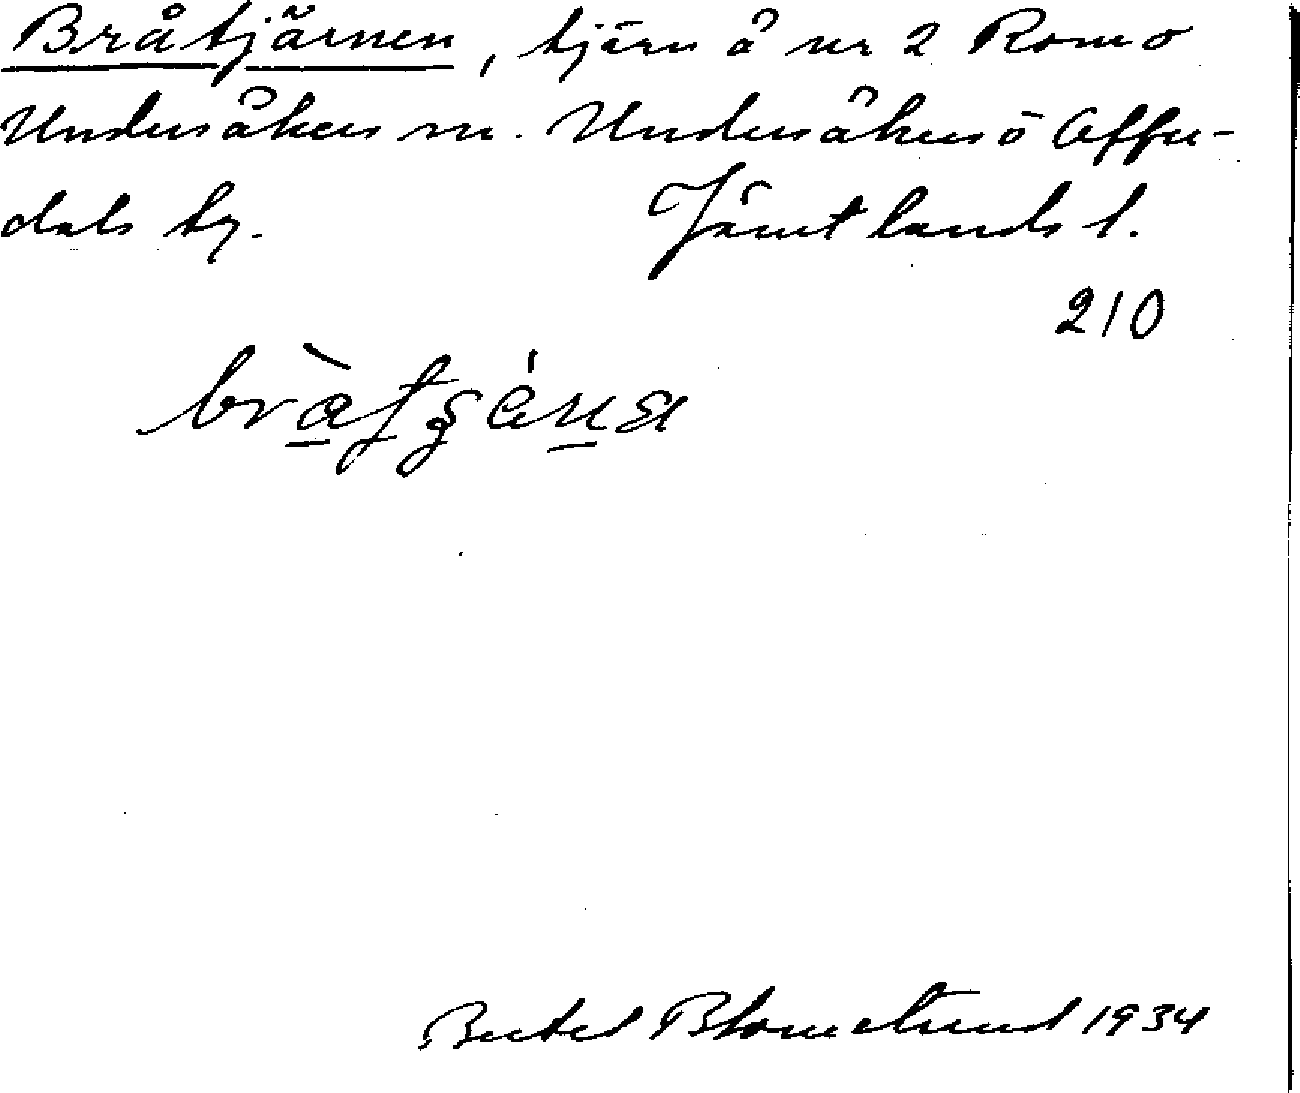 Bråtjärnen, tjärn å nr 2 Romo
Undersåkers sn. Undersåkers o Offer-
dals tg. Jämtlands l.
210
Bertel Blomstrand 1934